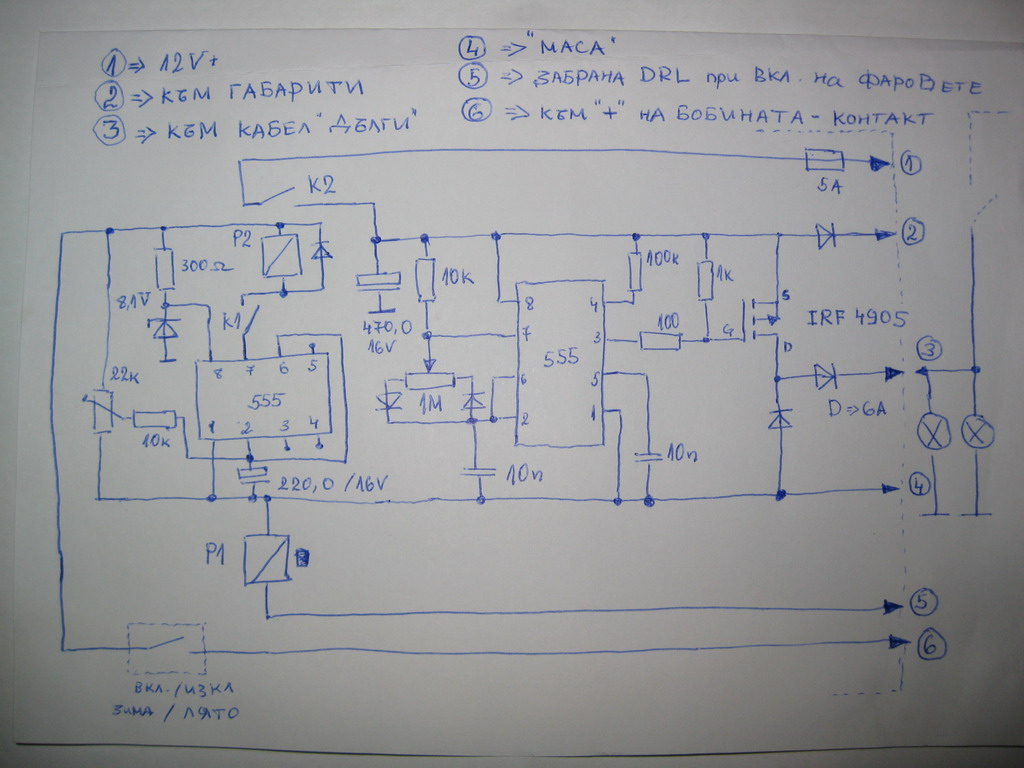 ① => 12V+
② => КЪМ ГАБАРИТИ
③ => КЪМ КАБЕЛ "ДЪЛГИ"
④ => "МАСА"
⑤ => ЗАБРАНА DRL при ВКЛ. на ФАРОВЕТЕ
⑥ => КЪМ "+" НА БОБИНАТА - КОНТАКТ
K2
5A
①
P2
300Ω
8,1V
K1
470,0
16V
10k
100k
1k
②
8
7
6
2
4
3
5
1
555
100
G
S
D
IRF 4905
③
D=>6A
1M
22k
10k
8
7
6
5
555
1
2
3
4
10n
10n
220,0/16V
④
P1
⑤
⑥
ВКЛ./ИЗКЛ
ЗИМА / ЛЯТО